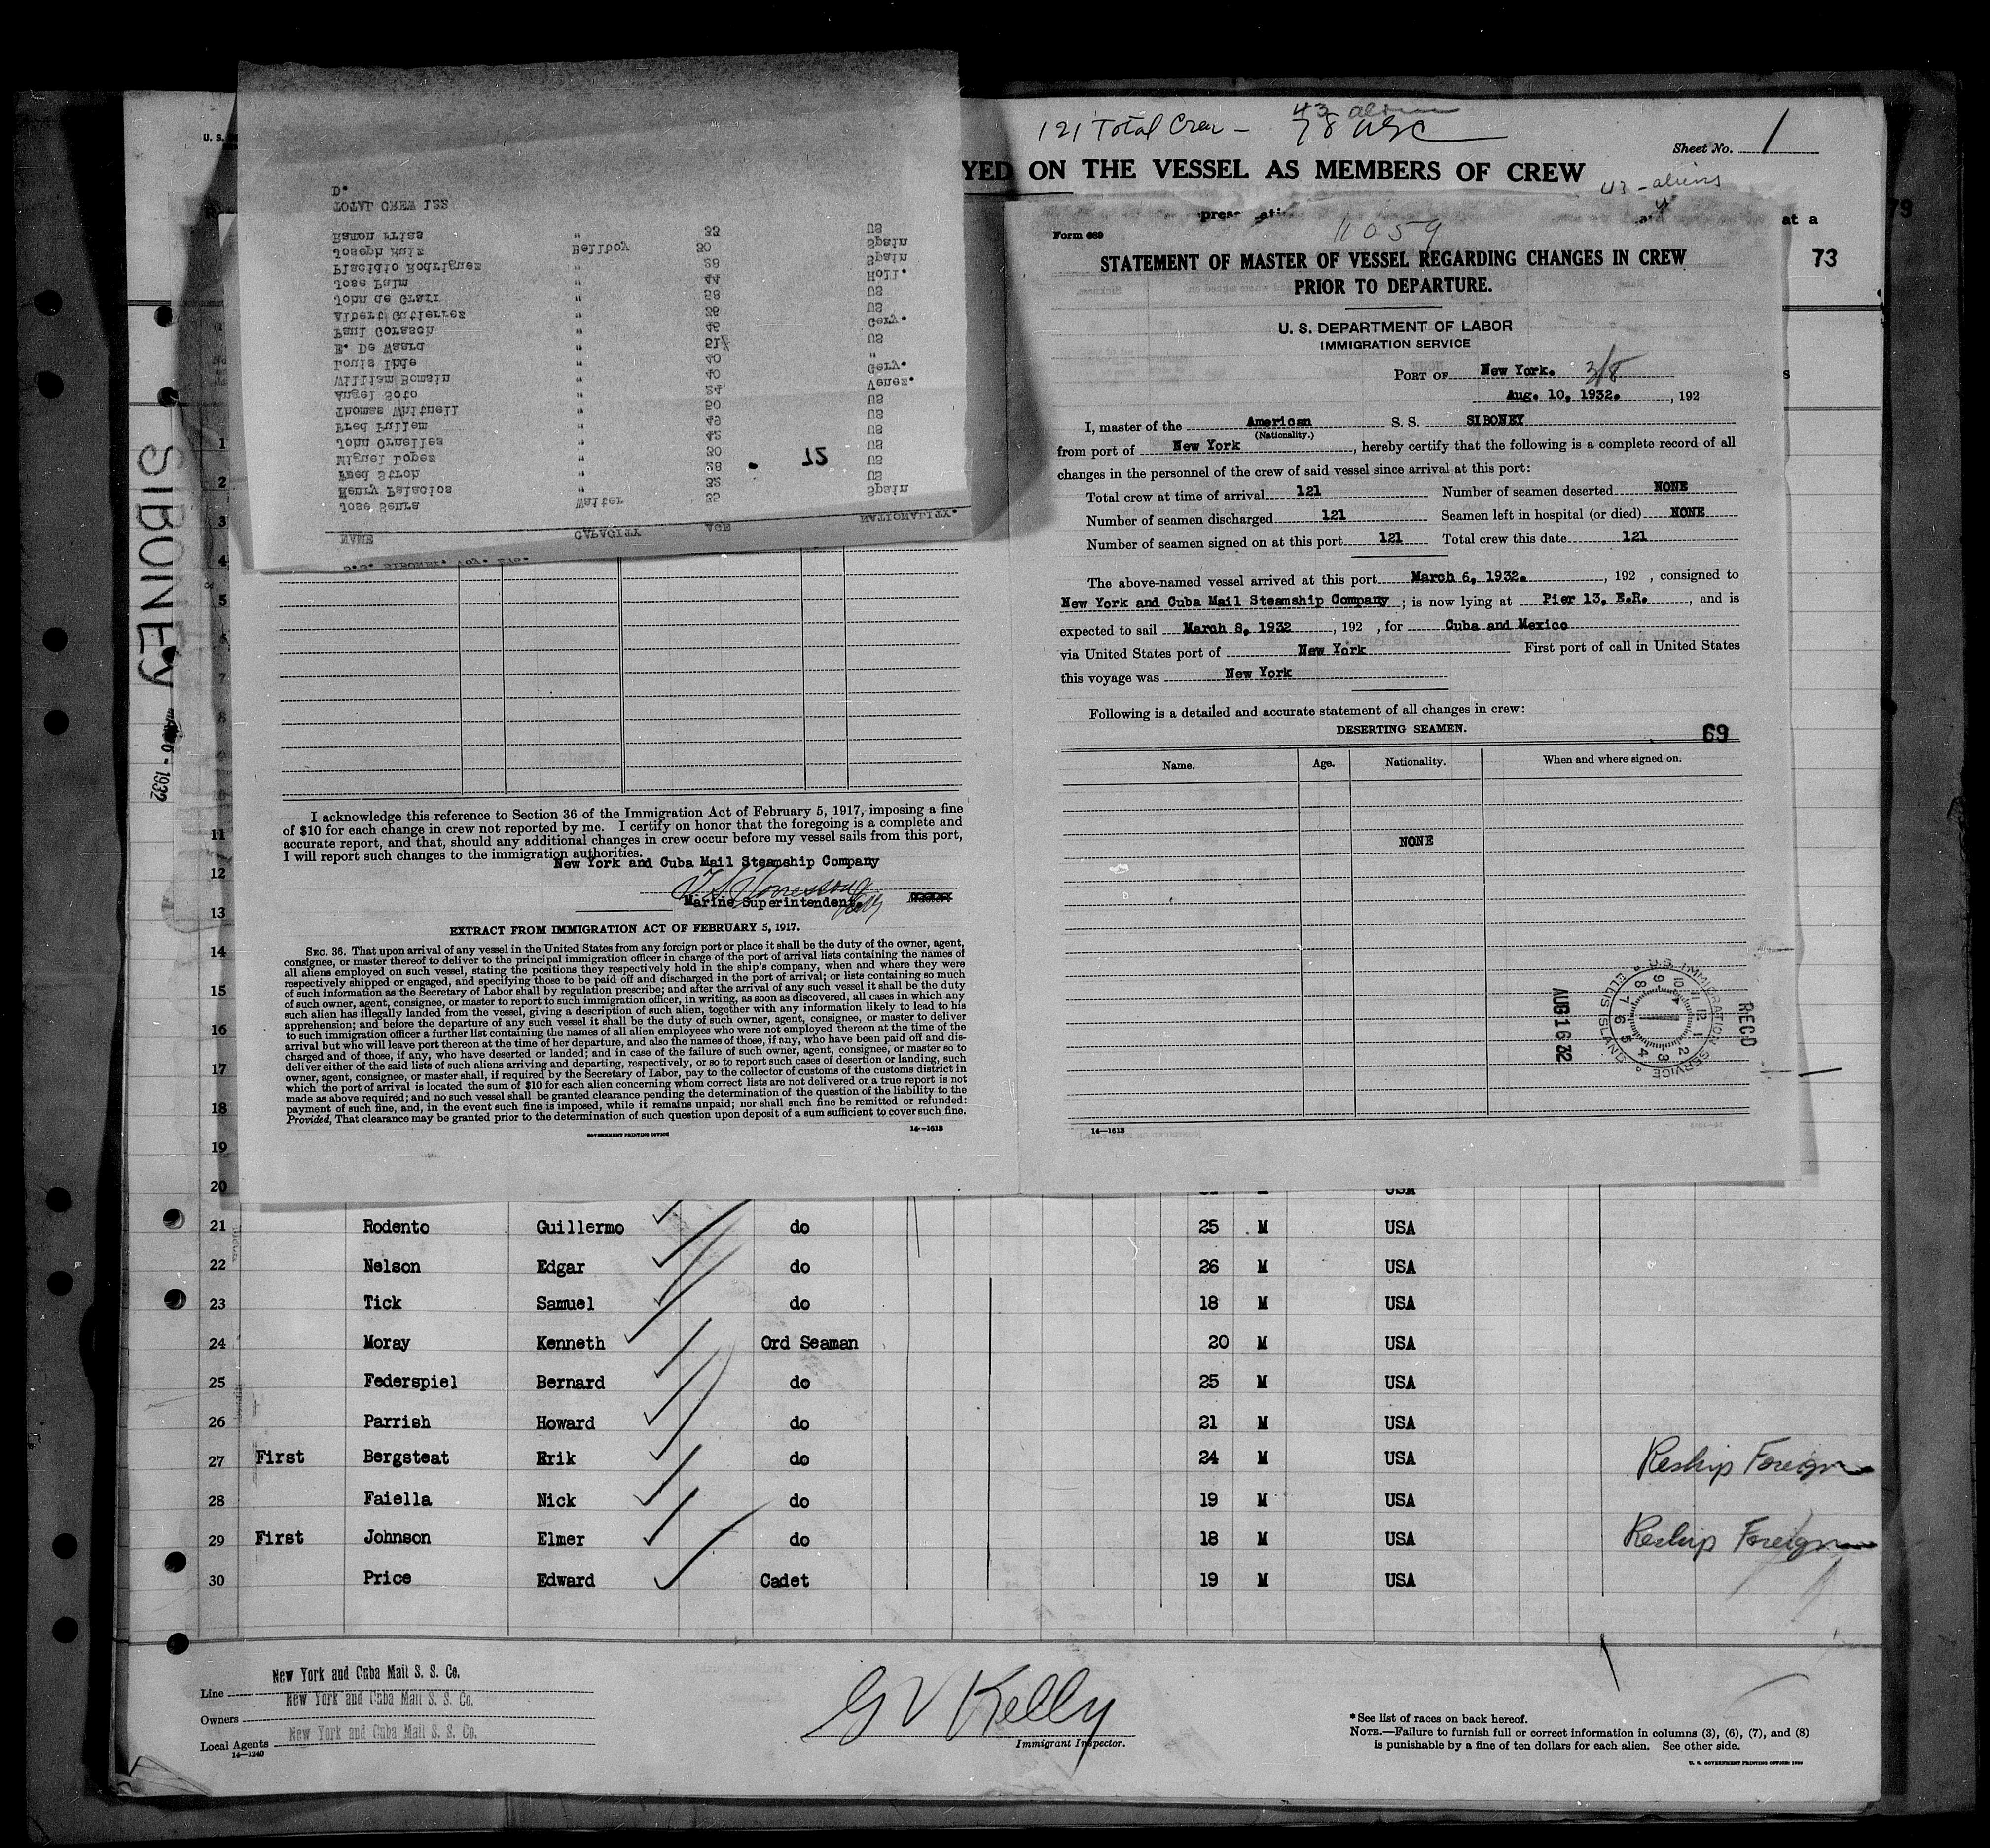 121 Total Crew - 43 aliens
78 USC
Sheet No. 1
YED ON THE VESSEL AS MEMBERS OF CREW
43 - aliens
U. S.
at a
79
73
SIBONEY
1932
S.S. SIBONEY. Voy.
NAME CAPACITY AGE NATIONALITY.
Jose Senra Waiter 35 Spain
Henry Palacios " 32 US
Fred Stroh " 28 US
Miguel Lopez " 30 US
John Ornelles " 42 US
Fred Fullem " 49 US
Thomas Whitnell " 50 US
Angel Soto " 24 Venez.
William Bomain " 40 Gery.
Louis Ihde " 40 "
E. De Waard " 51 US
Paul Gorasch " 46 Gery.
Albert Gutierrez " 36 US
John de Graff " 58 US
Jose Palm " 44 Holl.
Placidio Rodriguez " 28 Spain
Joseph Ruiz Bellboy 30 Spain
Ramon Frias " 33 US
TOTAL CREW 122
D.
72
Form 689
11059
STATEMENT OF MASTER OF VESSEL REGARDING CHANGES IN CREW
PRIOR TO DEPARTURE.
U. S. DEPARTMENT OF LABOR
IMMIGRATION SERVICE
PORT OF New York. 3/8
Aug. 10, 1932. , 192
I, master of the American S. S. SIBONEY
(Nationality.)
from port of New York , hereby certify that the following is a complete record of all
changes in the personnel of the crew of said vessel since arrival at this port:
Total crew at time of arrival 121 Number of seamen deserted NONE
Number of seamen discharged 121 Seamen left in hospital (or died) NONE
Number of seamen signed on at this port 121 Total crew this date 121
The above-named vessel arrived at this port March 6, 1932. , 192 , consigned to
New York and Cuba Mail Steamship Company ; is now lying at Pier 13, E.R. , and is
expected to sail March 8, 1932 , 192 , for Cuba and Mexico
via United States port of New York First port of call in United States
this voyage was New York
Following is a detailed and accurate statement of all changes in crew:
DESERTING SEAMEN.
69
Name. Age. Nationality. When and where signed on.
NONE
U.S. IMMIGRATION SERVICE ELLIS ISLAND
RECD
AUG 16 32
14—1613
I acknowledge this reference to Section 36 of the Immigration Act of February 5, 1917, imposing a fine
of $10 for each change in crew not reported by me. I certify on honor that the foregoing is a complete and
accurate report, and that, should any additional changes in crew occur before my vessel sails from this port,
I will report such changes to the immigration authorities.
New York and Cuba Mail Steamship Company
Marine Superintendent.
EXTRACT FROM IMMIGRATION ACT OF FEBRUARY 5, 1917.
SEC. 36. That upon arrival of any vessel in the United States from any foreign port or place it shall be the duty of the owner, agent,
consignee, or master thereof to deliver to the principal immigration officer in charge of the port of arrival lists containing the names of
all aliens employed on such vessel, stating the positions they respectively hold in the ship's company, when and where they were
respectively shipped or engaged, and specifying those to be paid off and discharged in the port of arrival; or lists containing so much
of such information as the Secretary of Labor shall by regulation prescribe; and after the arrival of any such vessel it shall be the duty
of such owner, agent, consignee, or master to report to such immigration officer, in writing, as soon as discovered, all cases in which any
such alien has illegally landed from the vessel, giving a description of such alien, together with any information likely to lead to his
apprehension; and before the departure of any such vessel it shall be the duty of such owner, agent, consignee, or master to deliver
to such immigration officer a further list containing the names of all alien employees who were not employed thereon at the time of the
arrival but who will leave port thereon at the time of her departure, and also the names of those, if any, who have been paid off and dis-
charged and of those, if any, who have deserted or landed; and in case of the failure of such owner, agent, consignee, or master so to
deliver either of the said lists of such aliens arriving and departing, respectively, or so to report such cases of desertion or landing, such
owner, agent, consignee, or master shall, if required by the Secretary of Labor, pay to the collector of customs of the customs district in
which the port of arrival is located the sum of $10 for each alien concerning whom correct lists are not delivered or a true report is not
made as above required; and no such vessel shall be granted clearance pending the determination of the question of the liability to the
payment of such fine, and, in the event such fine is imposed, while it remains unpaid; nor shall such fine be remitted or refunded:
Provided, That clearance may be granted prior to the determination of such question upon deposit of a sum sufficient to cover such fine.
GOVERNMENT PRINTING OFFICE
14—1613
1
2
3
4
5
11
12
13
14
15
16
17
18
19
20 USA
21 Rodento Guillermo do 25 M USA
22 Nelson Edgar do 26 M USA
23 Tick Samuel do 18 M USA
24 Moray Kenneth Ord Seaman 20 M USA
25 Federspiel Bernard do 25 M USA
26 Parrish Howard do 21 M USA
27 First Bergsteat Erik do 24 M USA Reship Foreign
28 Faiella Nick do 19 M USA
29 First Johnson Elmer do 18 M USA Reship Foreign
30 Price Edward Cadet 19 M USA
Line New York and Cuba Mail S. S. Co.
Owners New York and Cuba Mail S. S. Co.
Local Agents New York and Cuba Mail S. S. Co.
14—1240
G V Kelly
Immigrant Inspector.
* See list of races on back hereof.
NOTE.—Failure to furnish full or correct information in columns (3), (6), (7), and (8)
is punishable by a fine of ten dollars for each alien. See other side.
U. S. GOVERNMENT PRINTING OFFICE